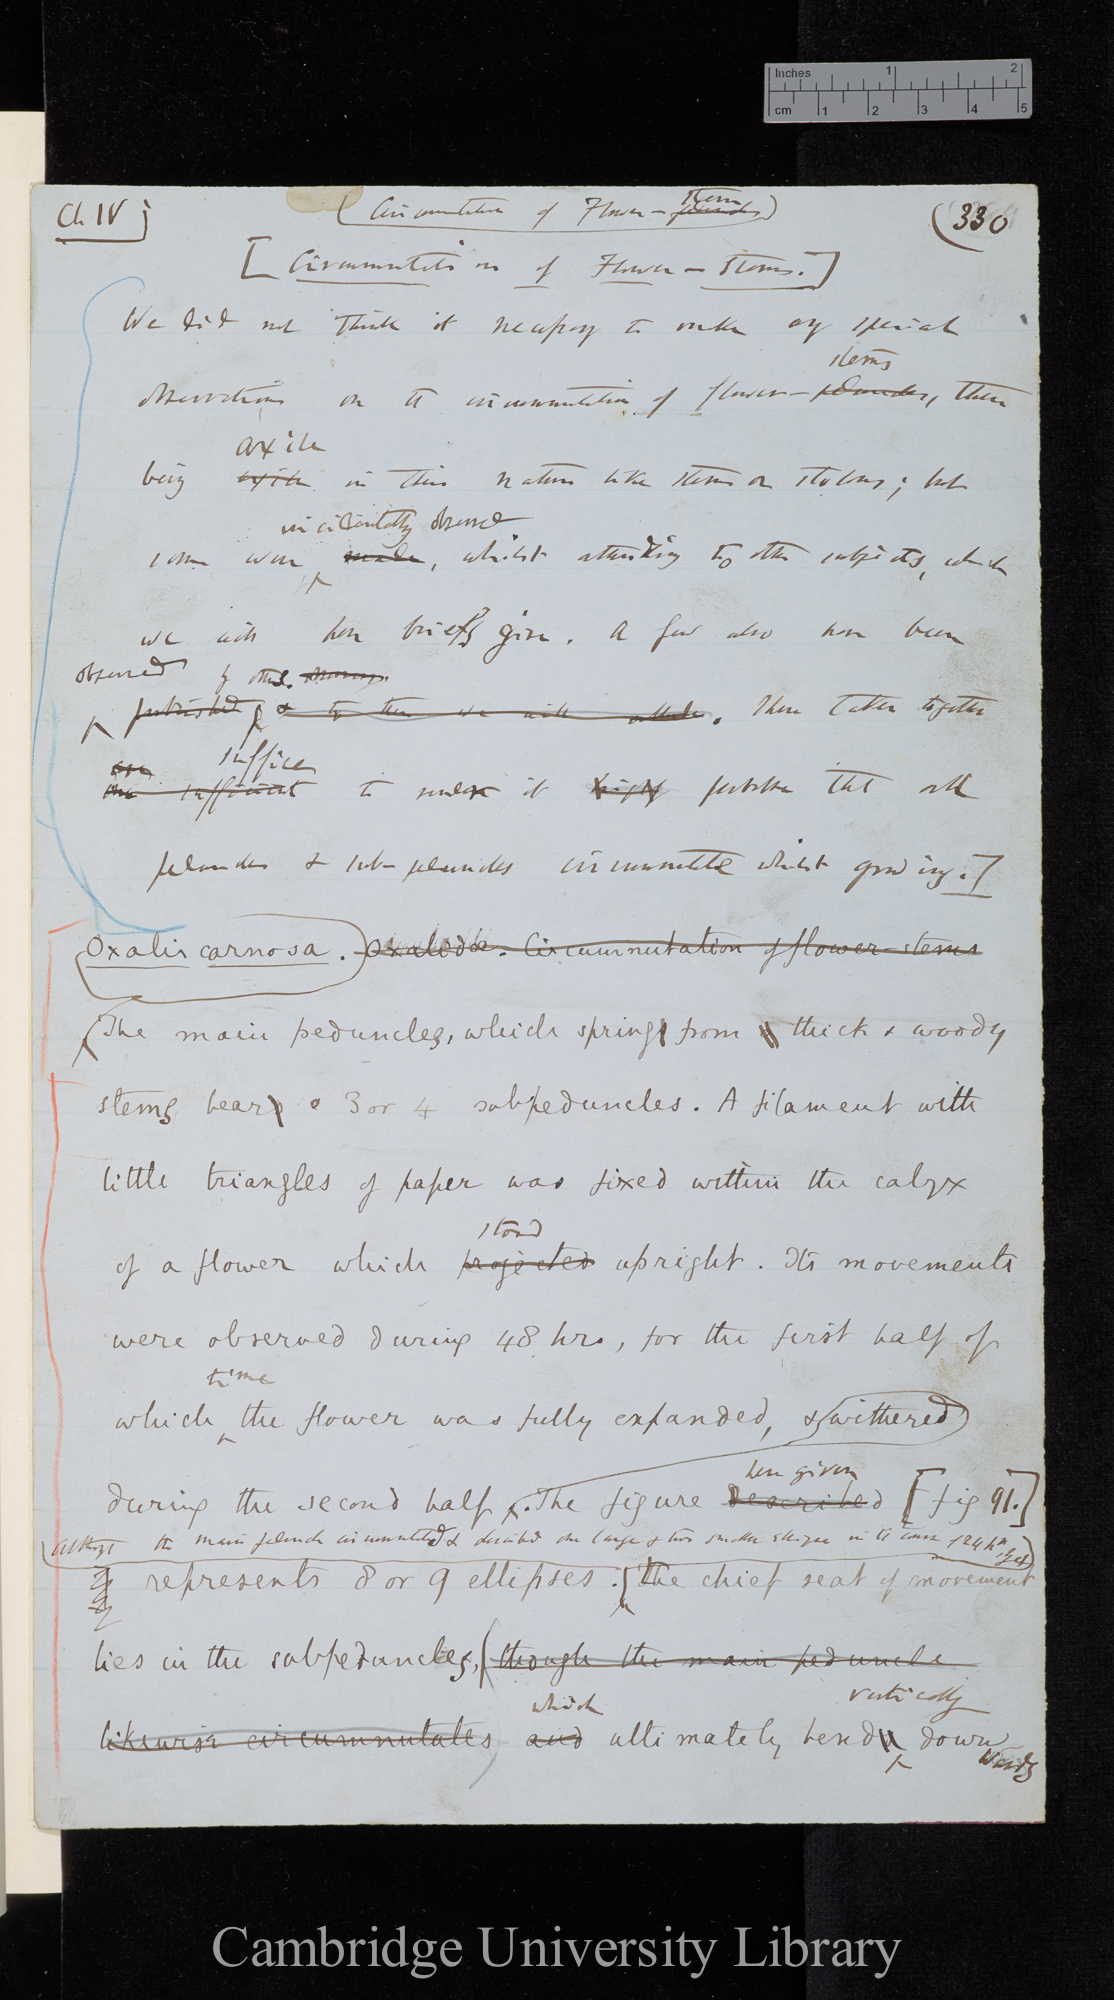 Inches 1 2
cm 1 2 3 4 5
Ch IV
(Circumnutation of Flower- stem peduncles)
(330
[Circumnutation of Flower-stems.]
We did not think it necessary to make any special
stems
observations on the circumnutation of flower-peduncles, these
axile
being axile in their nature like stems or stolons; but
incidentally observed
some were made, whilst attending to other subjects, which
we will here briefly give. A few also have been
observed by others.
published & to these we will allude. These taken together
are suffice
are sufficient to render it highly probable that all
peduncles & sub-peduncles circumnutate whilst growing.]
Oxalis carnosa. Oxalidae. Circumnutation of flower-stems
The main peduncles, which springs from thick & woody
stems bears 3 or 4 subpeduncles. A filament with
little triangles of paper was fixed within the calyx
stood
of a flower which projected upright. Its movements
were observed during 48 hrs, for the first half of
time
which the flower was fully expanded, & withered
here given
during the second half. The figure described [fig 91.]
Although the main peduncle circumnutated & described one large & two smaller ellipses in the course of 24 hrs yet
represents 8 or 9 ellipses. the chief seat of movement
lies in the subpeduncles, (though the main peduncle
which vertically
likewise circumnutates) and ultimately bend down-
wards
Cambridge University Library